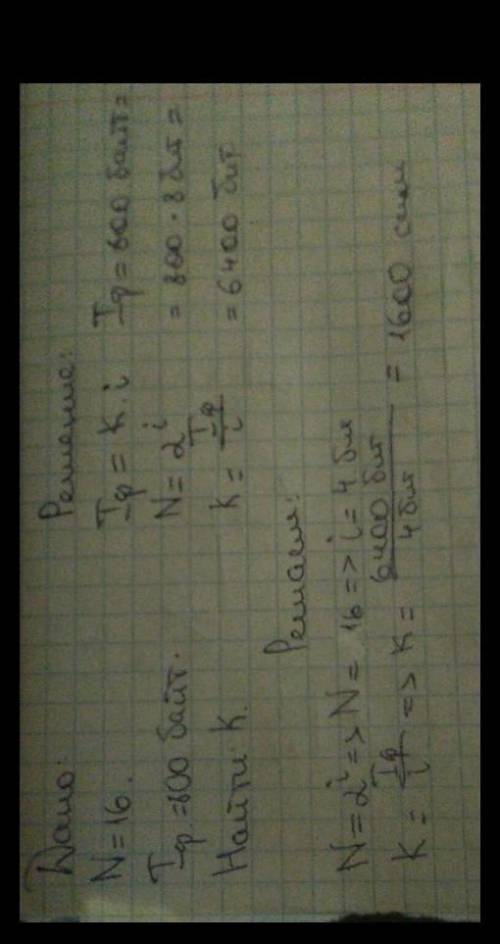 Дано:
N = 16.
Iф = 800 байт.
Найти K.
Решение:
Iф = K · i
N = 2^i
K = Iф/i
Iф = 800 байт =
= 800 · 8 бит =
= 6400 бит
Решаем:
N = 2^i => N = 16 => i = 4 бит
K = Iф/i => K = 6400 бит/4 бит = 1600 симв